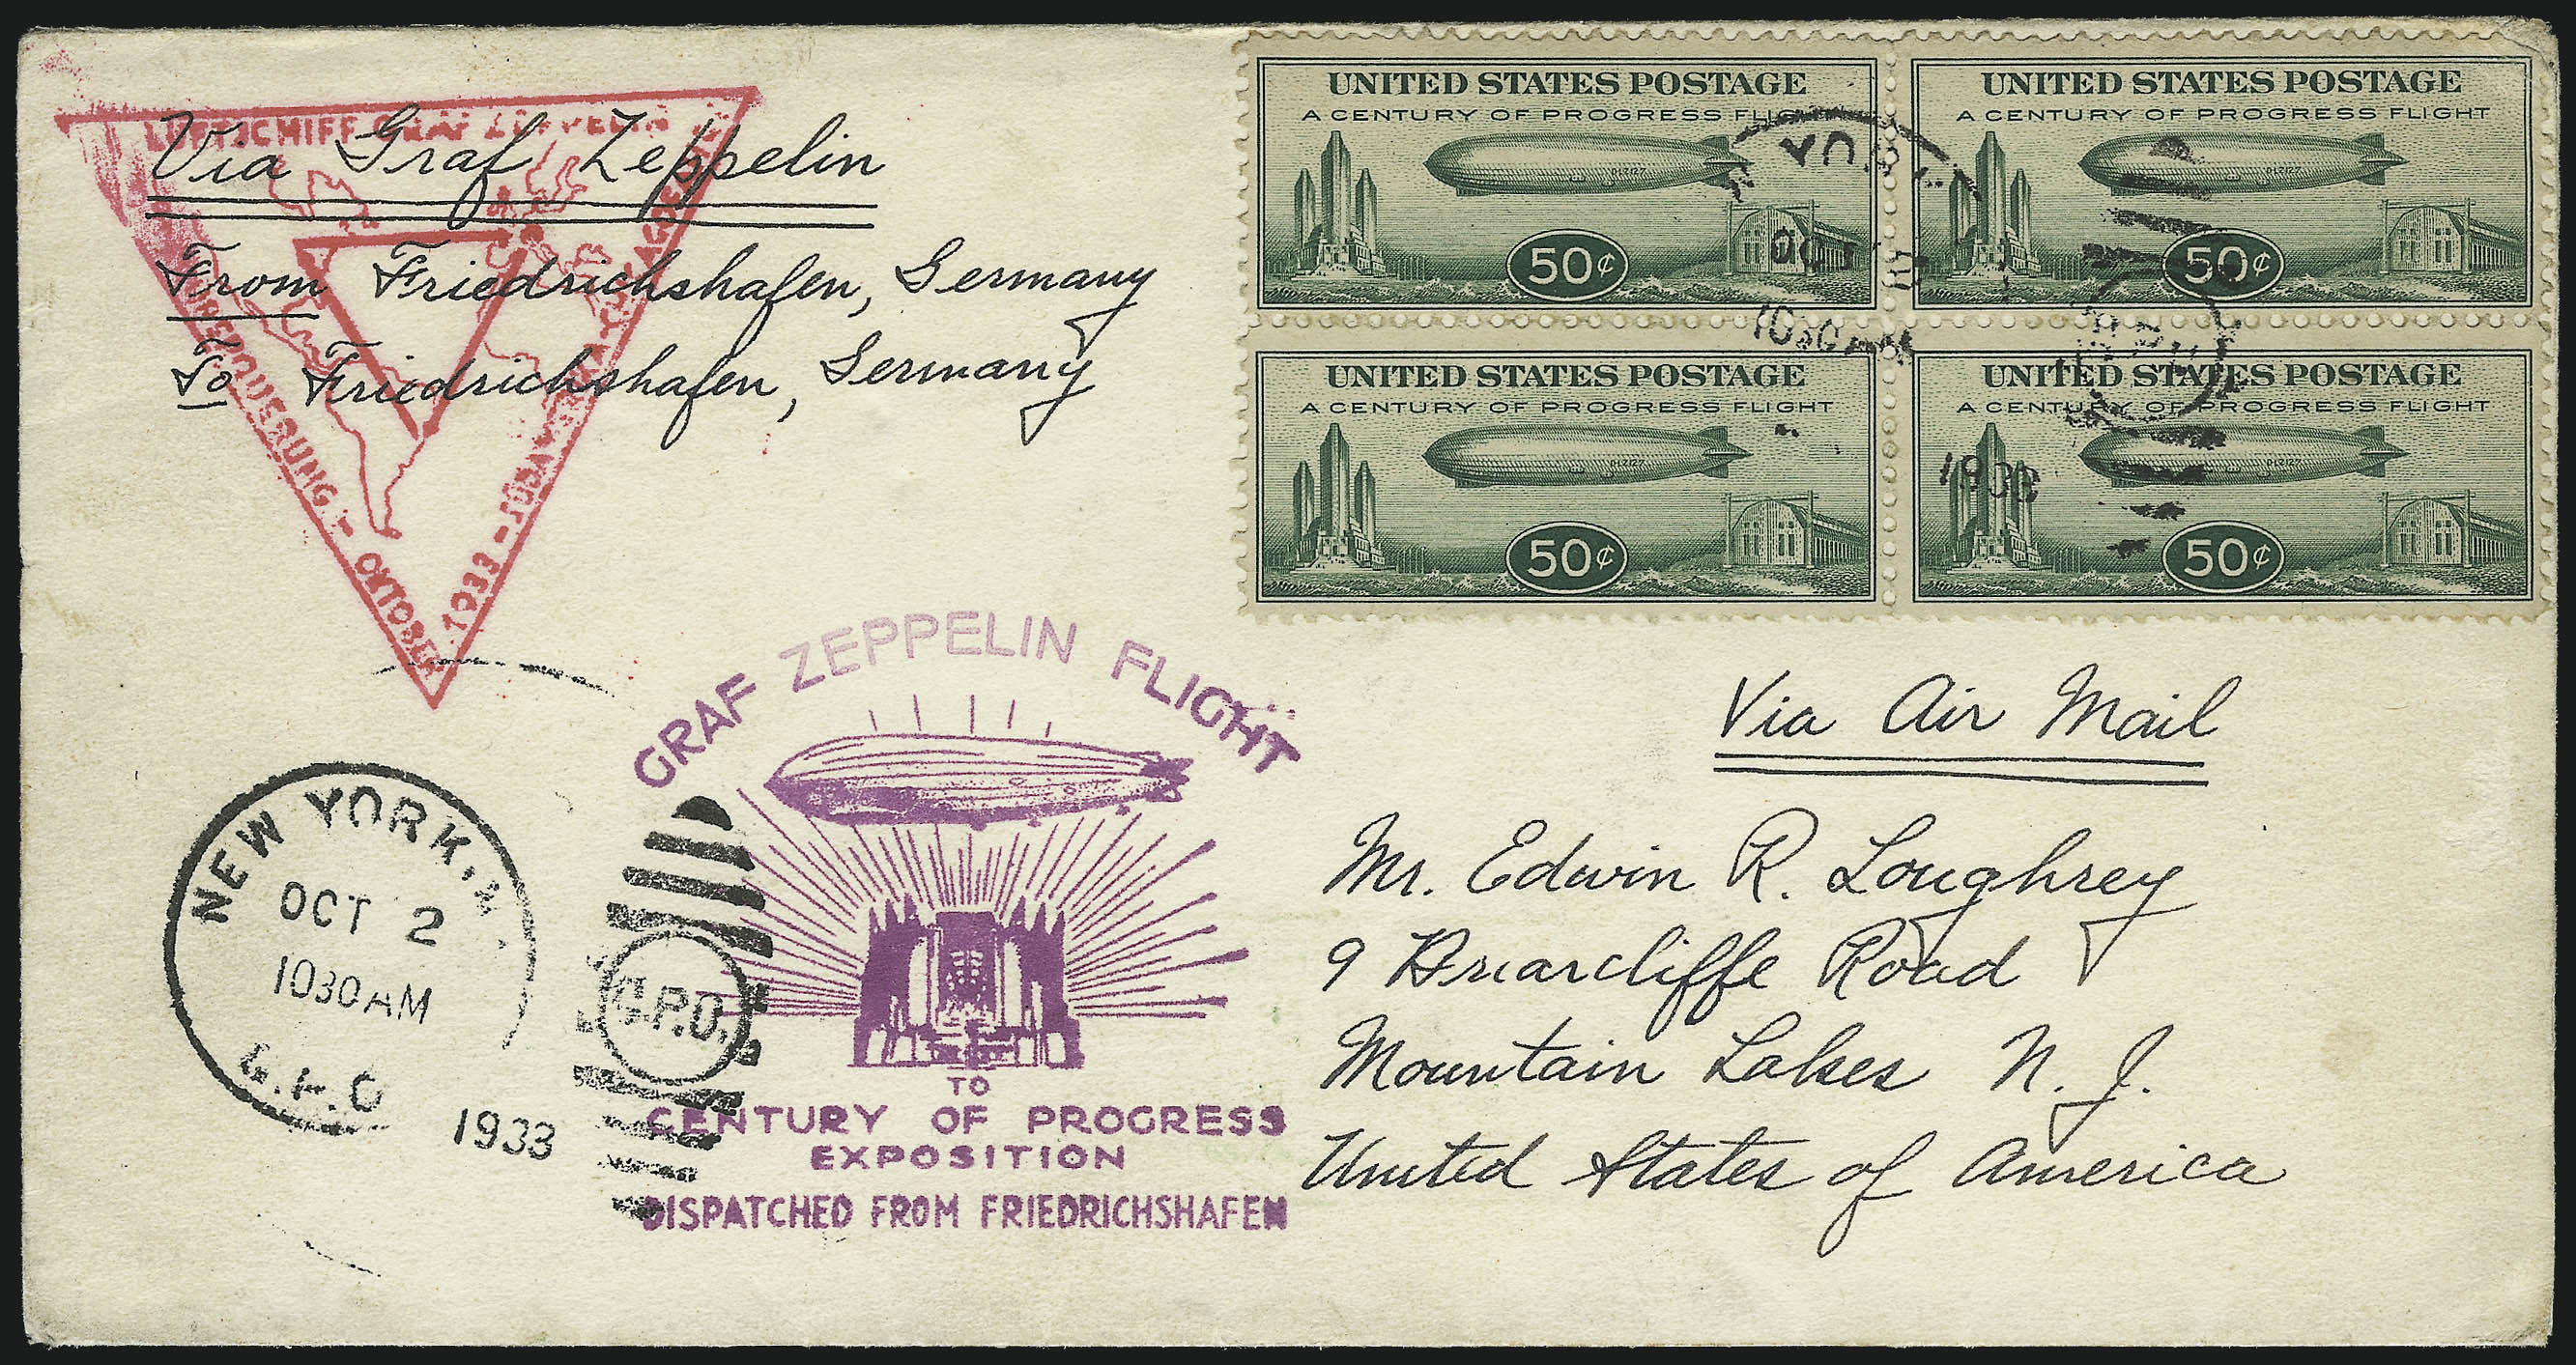 LUFTSCHIFF GRAF ZEPPELIN
OKTOBER 1933
Via Graf Zeppelin
From Friedrichshafen, Germany
To Friedrichshafen, Germany
UNITED STATES POSTAGE
A CENTURY OF PROGRESS FLIGHT
50¢
UNITED STATES POSTAGE
A CENTURY OF PROGRESS FLIGHT
50¢
UNITED STATES POSTAGE
A CENTURY OF PROGRESS FLIGHT
50¢
UNITED STATES POSTAGE
A CENTURY OF PROGRESS FLIGHT
50¢
1030 AM
1933
GRAF ZEPPELIN FLIGHT
TO
CENTURY OF PROGRESS
EXPOSITION
DISPATCHED FROM FRIEDRICHSHAFEN
NEW YORK, N.
OCT 2
1030 AM
G.P.O
1933
G.P.O.
Via Air Mail
Mr. Edwin R. Loughrey
9 Briarcliffe Road
Mountain Lakes N. J.
United States of America